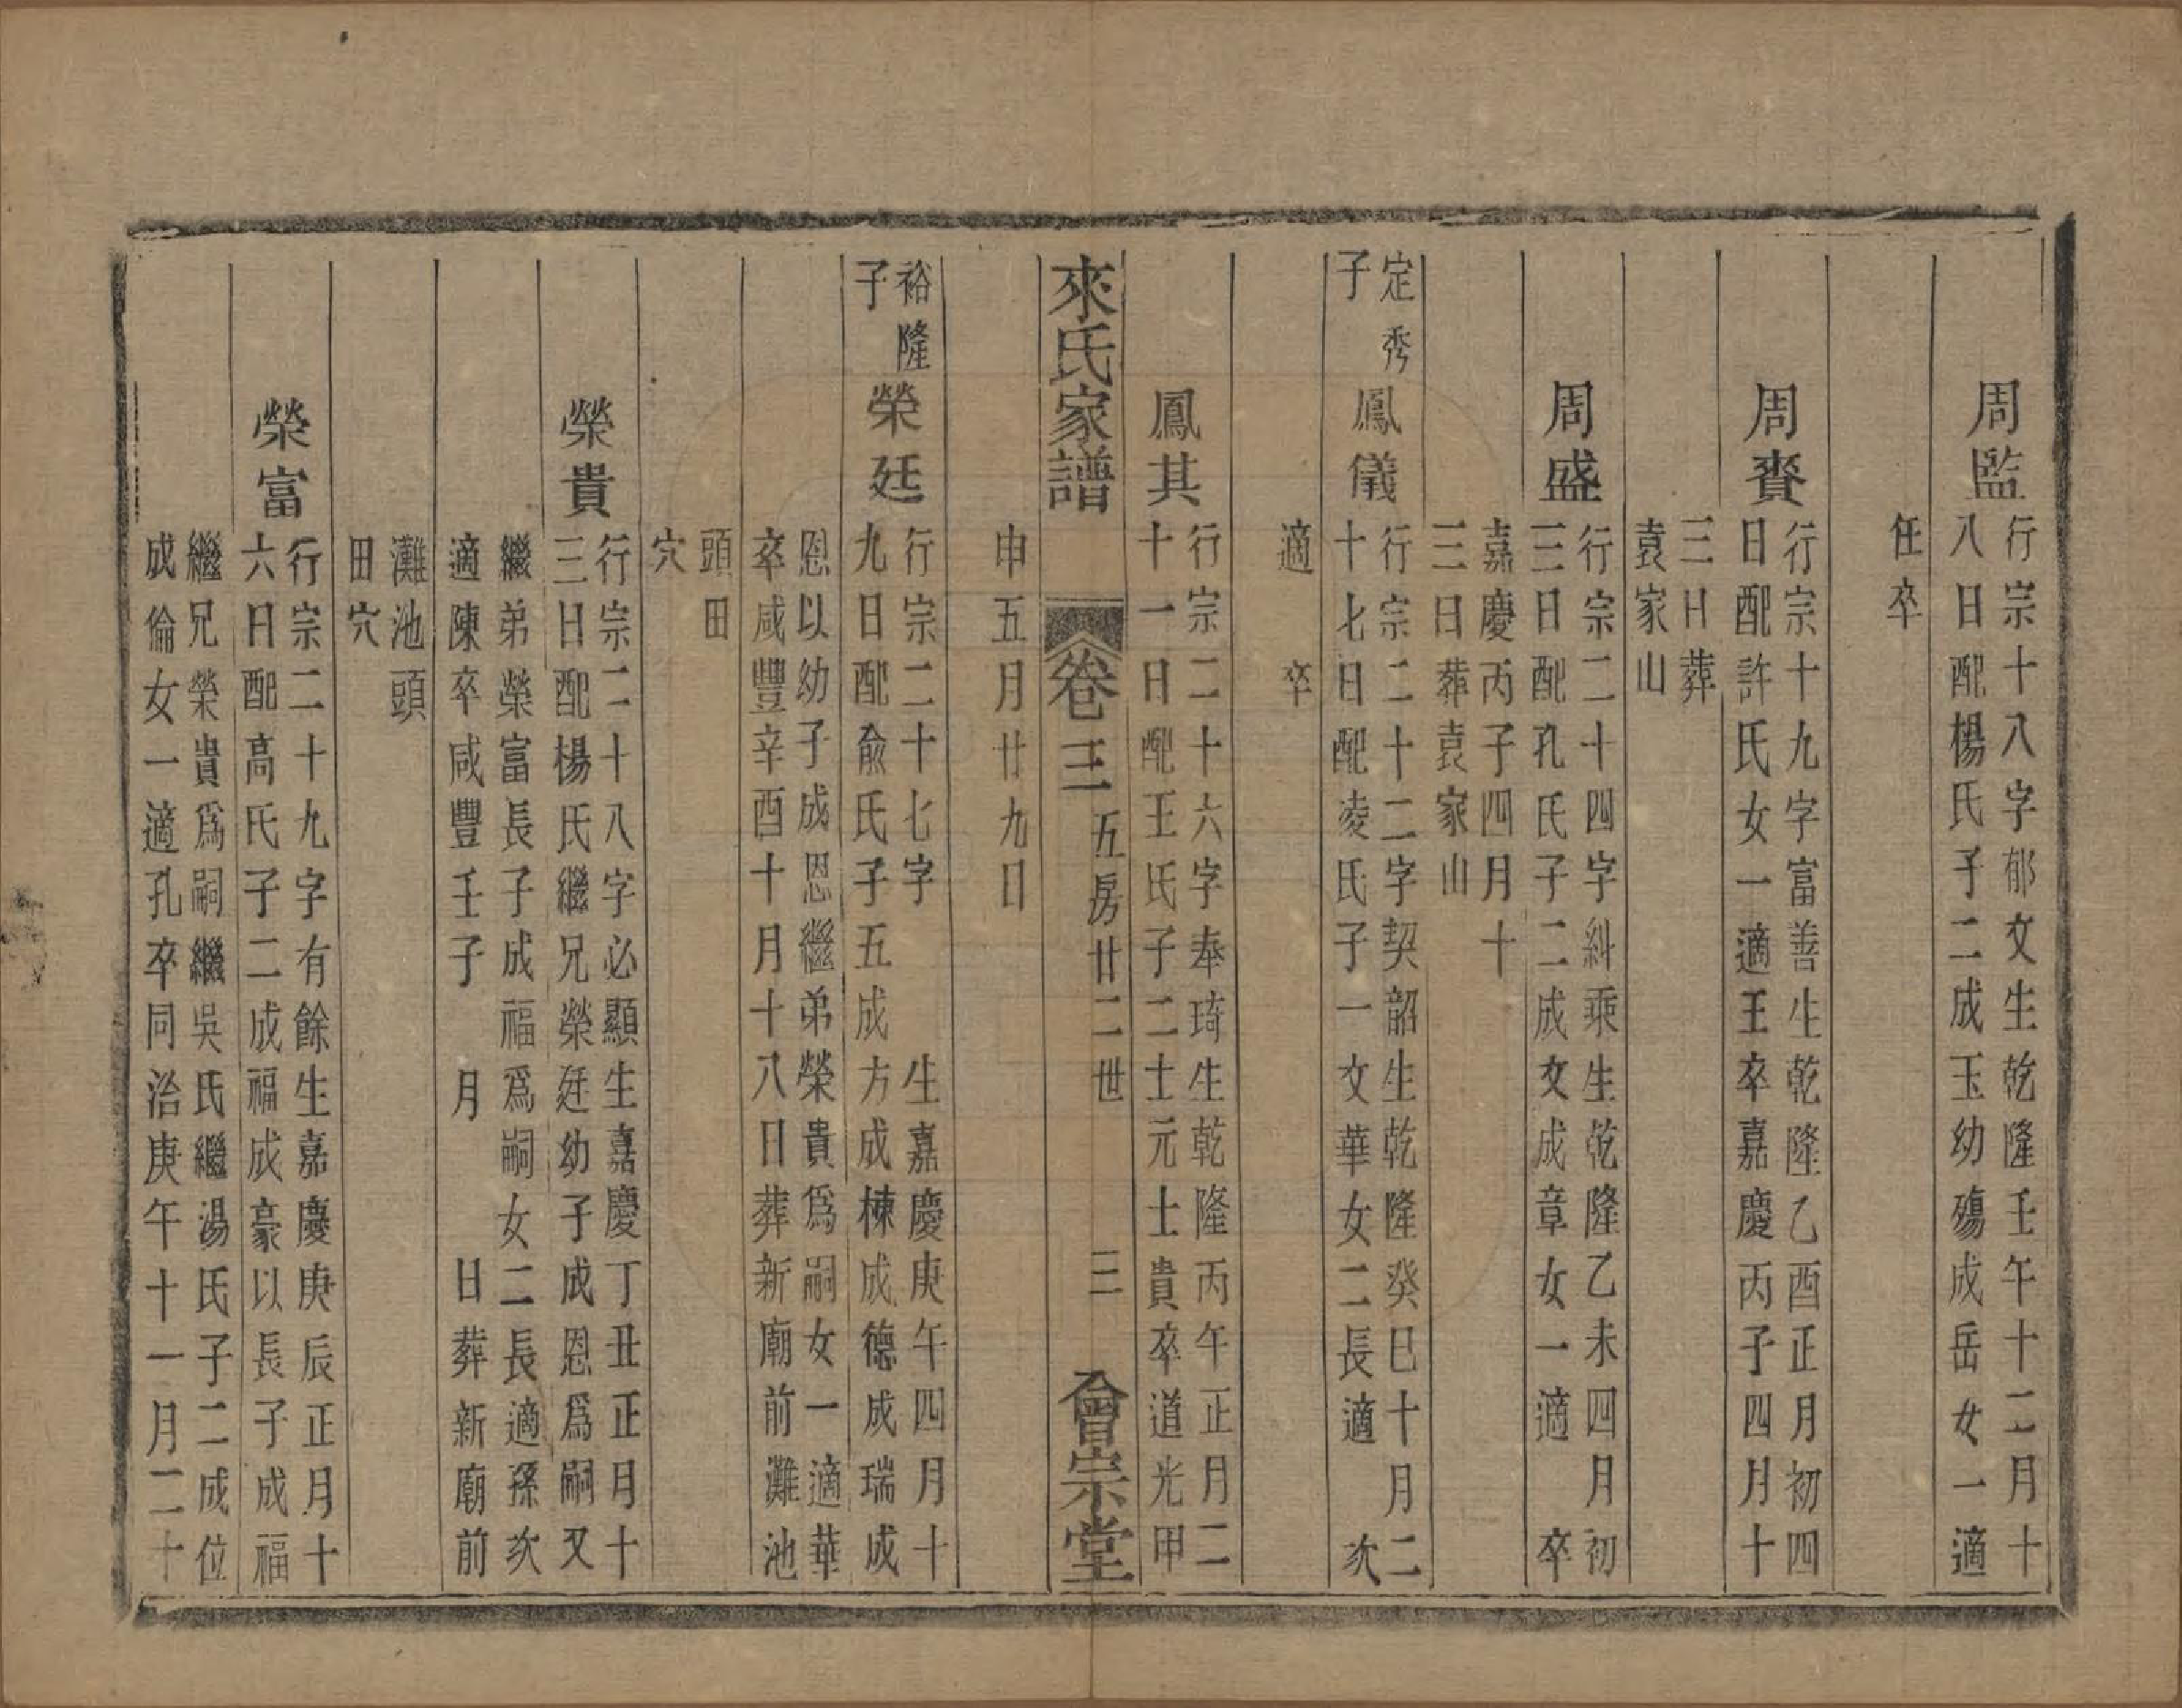 周監
行宗十八字郁文生乾隆壬午十二月十
八日配楊氏子二成玉幼殤成岳女一適
任卒
周賚
行宗十九字富善生乾隆乙酉正月初四
日配許氏女一適王卒嘉慶丙子四月十
三日葬
袁家山
周盛
行宗二十四字糾乘生乾隆乙未四月初
三日配孔氏子二成文成章女一適　卒
嘉慶丙子四月十
三日葬袁家山
定秀
子
鳳儀
行宗二十二字契韶生乾隆癸巳十月二
十七日配凌氏子一文華女二長適　次
適　卒
鳳其
行宗二十六字奉琦生乾隆丙午正月二
十一日配王氏子二士元士貴卒道光甲
來氏家譜　卷三　五房廿二世　三　會宗堂
申五月廿九日
裕隆
子
榮廷
行宗二十七字　　生嘉慶庚午四月十
九日配俞氏子五成方成棟成德成瑞成
恩以幼子成恩繼弟榮貴爲嗣女一適華
卒咸豐辛酉十月十八日葬新廟前灘池
頭田
穴
榮貴
行宗二十八字必顯生嘉慶丁丑正月十
三日配楊氏繼兄榮廷幼子成恩爲嗣又
繼弟榮富長子成福爲嗣女二長適孫次
適陳卒咸豐壬子　月　　日葬新廟前
灘池頭
田穴
榮富
行宗二十九字有餘生嘉慶庚辰正月十
六日配高氏子二成福成豪以長子成福
繼兄榮貴爲嗣繼吳氏繼湯氏子二成位
成倫女一適孔卒同治庚午十一月二十